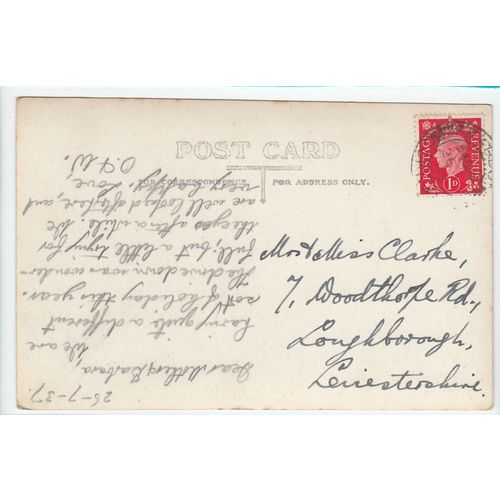 POST CARD
FOR CORRESPONDENCE
FOR ADDRESS ONLY.
POSTAGE
REVENUE
1D
Mrs & Miss Clarke,
7, Woodthorpe Rd.,
Loughborough,
Leicestershire.
26-7-37
Dear Mother & Barbara,
We are
having quite a different
sort of holiday this year.
The drive down was wonder-
full, but a little trying for
the eyes after a while. We
are well looked after here, and
very happy. Love,
O & W.